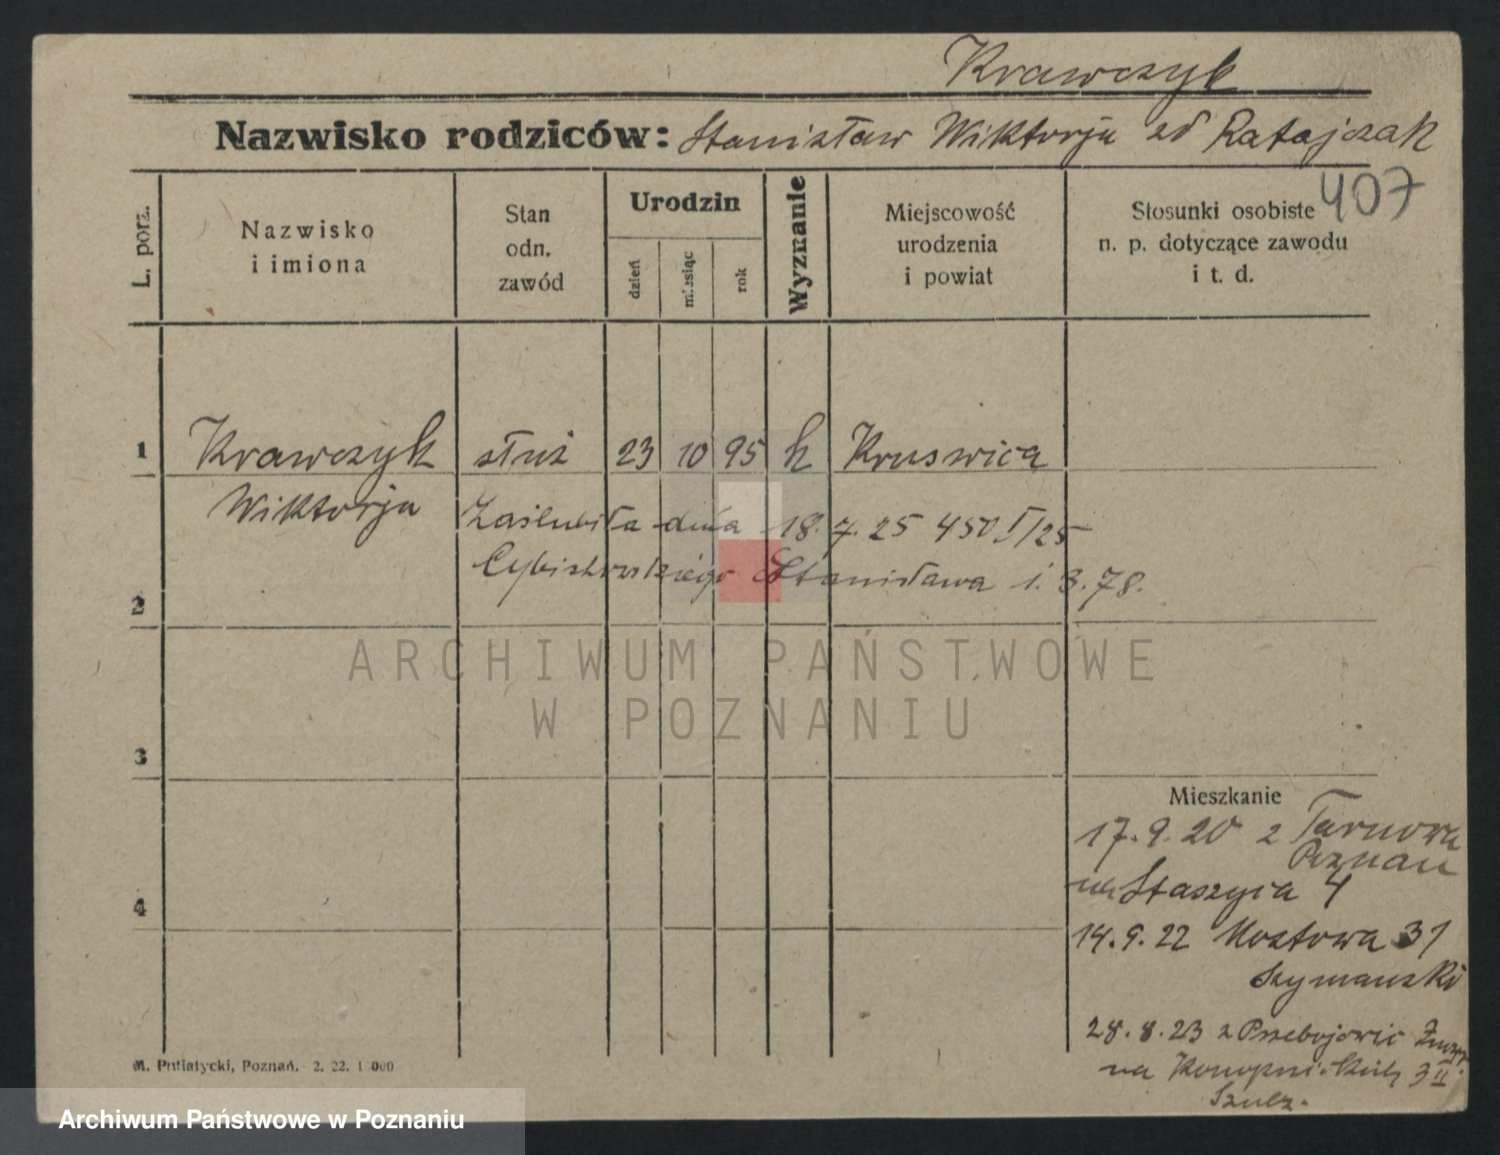 Krawczyk
Nazwisko rodziców: Stanisław Wiktorja zd Ratajczak
407
L. porz.
Nazwisko
i imiona
Stan
odn.
zawód
Urodzin
dzień
miesiąc
rok
Wyznanie
Miejscowość
urodzenia
i powiat
Stosunki osobiste
n. p. dotyczące zawodu
i t. d.
1 Krawczyk służ 23 10 95 k Kruswica
Wiktorja Zaślubiła dnia 18. 7. 25 450 I/25
Stanisława 1. 3. 78.
2
3
4
ARCHIWUM PAŃSTWOWE
W POZNANIU
Mieszkanie
17. 9. 20 z Tarnowa
Poznan
na Staszyca 4
14. 9. 22 31
Szymanski
28. 8. 23 z
na 3 II
Szulz.
M. Putiatycki, Poznań. 2. 22. 1 000
Archiwum Państwowe w Poznaniu